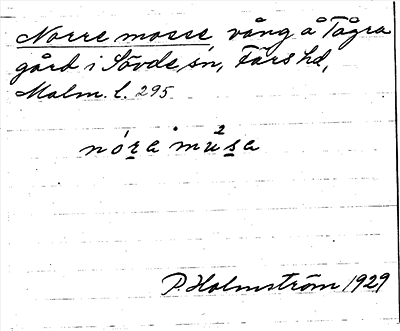 Norre mosse vång å Tågra
gård i Sövde sn, Färs hd,
Malm. l. 295
nóra mùsa
P. Holmström 1929